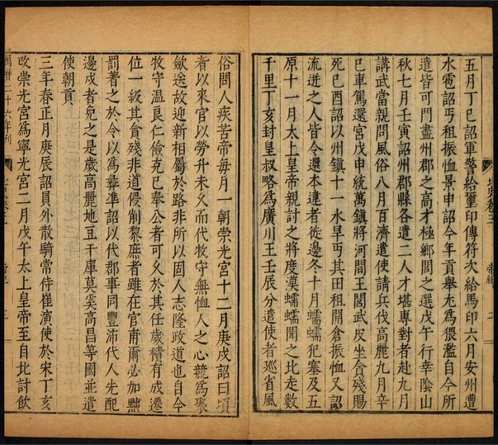 五月丁巳詔軍警給璽印傳符次給馬印六月安州遭
水雹詔丐租振恤景申詔今年貢舉尤為猥濫自今所
遣皆可門盡州郡之高才極鄉閭之選戊午行幸陰山
秋七月壬寅詔州郡縣各遣二人才堪專對者赴九月
講武當親問風俗八月百濟遣使請兵伐高麗九月辛
巳車駕還宮戊申統萬鎮將河間王閭武皮坐貪殘賜
死己酉詔以州鎮十一水旱丐其田租開倉振恤又詔
流迸之人皆令還本違者徙邊冬十月蠕蠕犯塞及五
原十一月太上皇親討之將度漠蠕蠕聞之北走數
千里丁亥封皇叔略為廣川王壬辰分遣使者巡省風
俗問人疾苦帝每月一朝崇光宮十二月庚戌詔曰頃
者以來官以勞升未久而代牧守無恤人之心競為聚
斂送故迎新相屬於路非所以固人志隆政道也自今
牧守溫良仁儉克己奉公者可久於其任歲積有成遷
位一級其貪殘非道侵削黎庶者雖在官甫爾必加黜
罰著之於令以為彝準詔以代郡事同豐沛代人先配
邊戍者免之是歲高麗地豆干庫莫奚高昌等國並遣
使朝貢
三年春正月庚辰詔員外散騎常侍崔演使於宋丁亥
改崇光宮為寧光宮二月戊午太上皇帝至自北討飲